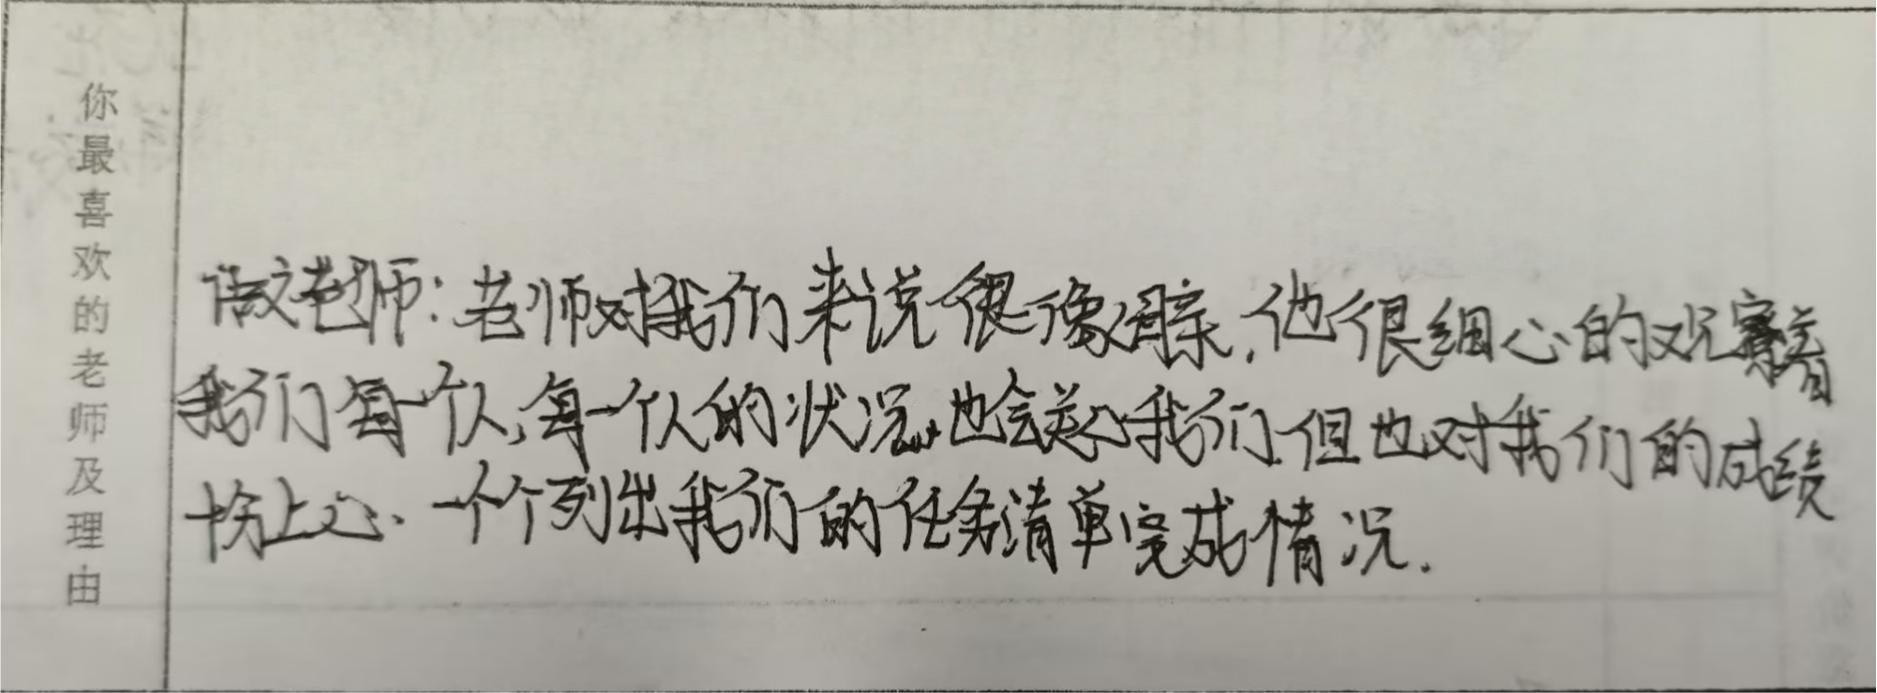 你最喜欢的老师及理由
语文老师：老师对我们来说很像母亲，他很细心的观察着
我们每一个人，每一个人的状况，也会关心我们，但也对我们的成绩
十分上心、一个个列出我们的任务清单完成情况．